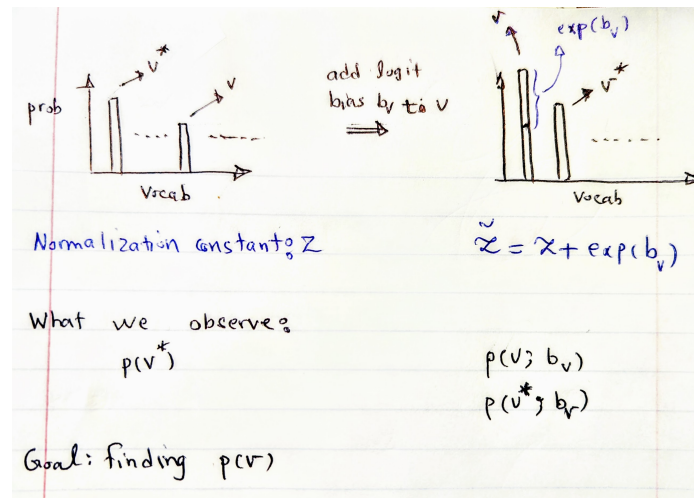 v*
v
prob
Vocab
add logit
bias bv to v
⟹
v
exp(bv)
v*
Vocab
Normalization constant: Z
z̃ = z + exp(bv)
What we observe:
p(v*)
p(v; bv)
p(v*; bv)
Goal: finding p(v)